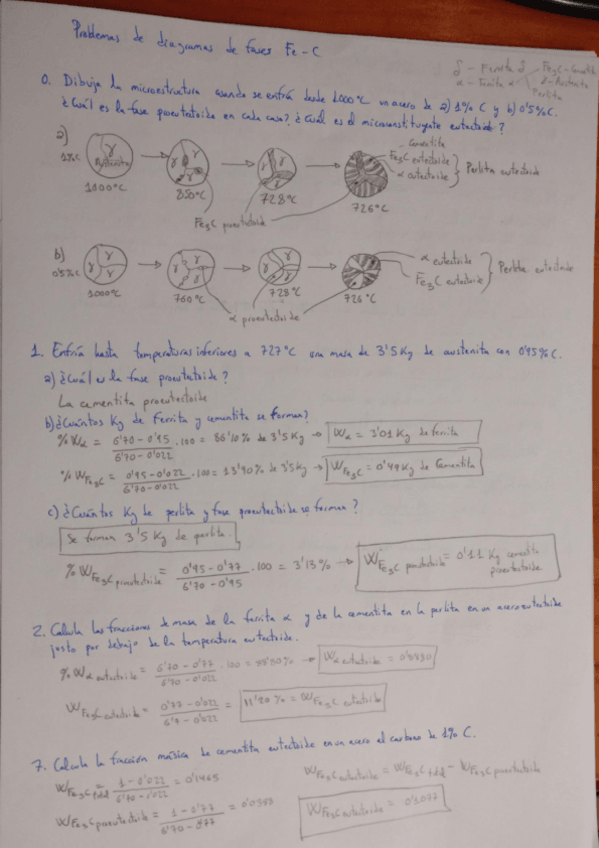 Problemas de diagramas de fases Fe-C
δ - Ferrita δ
Fe3C - Cementita
γ - Austenita
Perlita
0. Dibuja la microestructura cuando se enfría desde 1000°C un acero de a) 1% C y b) 0'5% C.
¿Cuál es la fase proeutectoide en cada caso? ¿Cuál es el microconstituyente eutectoide?
a)
1%C
Austenita
γ γ γ γ γ γ γ
1000°C
850°C
728°C
726°C
Fe3C proeutectoide
Cementita
Fe3C eutectoide
α eutectoide
Perlita eutectoide
b)
0'5%C
γ γ γ γ γ γ
1000°C
760°C
728°C
726°C
α proeutectoide
α eutectoide
Fe3C eutectoide
Perlita eutectoide
1. Enfría hasta temperaturas inferiores a 727°C una masa de 3'5 Kg de austenita con 0'95% C.
a) ¿Cuál es la fase proeutectoide?
La cementita proeutectoide
b) ¿Cuántos Kg de ferrita y cementita se forman?
% Wα = 6'70 - 0'95 / 6'70 - 0'022 · 100 = 86'10 % de 3'5 Kg → Wα = 3'01 Kg de ferrita
% WFe3C = 0'95 - 0'022 / 6'70 - 0'022 · 100 = 13'90 % de 3'5 Kg → WFe3C = 0'49 Kg de Cementita
c) ¿Cuántos Kg de perlita y fase proeutectoide se forman?
Se forman 3'5 Kg de perlita.
% WFe3C proeutectoide = 0'95 - 0'77 / 6'70 - 0'95 · 100 = 3'13 % → WFe3C proeutectoide = 0'11 Kg cementita proeutectoide
2. Calcula las fracciones de masa de la ferrita α y de la cementita en la perlita en un acero eutectoide
justo por debajo de la temperatura eutectoide.
% Wα eutectoide = 6'70 - 0'77 / 6'70 - 0'022 · 100 = 88'80 % → Wα eutectoide = 0'8880
WFe3C eutectoide = 0'77 - 0'022 / 6'7 - 0'022 = 11'20 % = WFe3C eutectoide
7. Calcula la fracción másica de cementita eutectoide en un acero al carbono de 1% C.
WFe3C total = 1 - 0'022 / 6'70 - 0'022 = 0'1465
WFe3C eutectoide = WFe3C total - WFe3C proeutectoide
WFe3C proeutectoide = 1 - 0'77 / 6'70 - 0'77 = 0'0388
WFe3C eutectoide = 0'1077